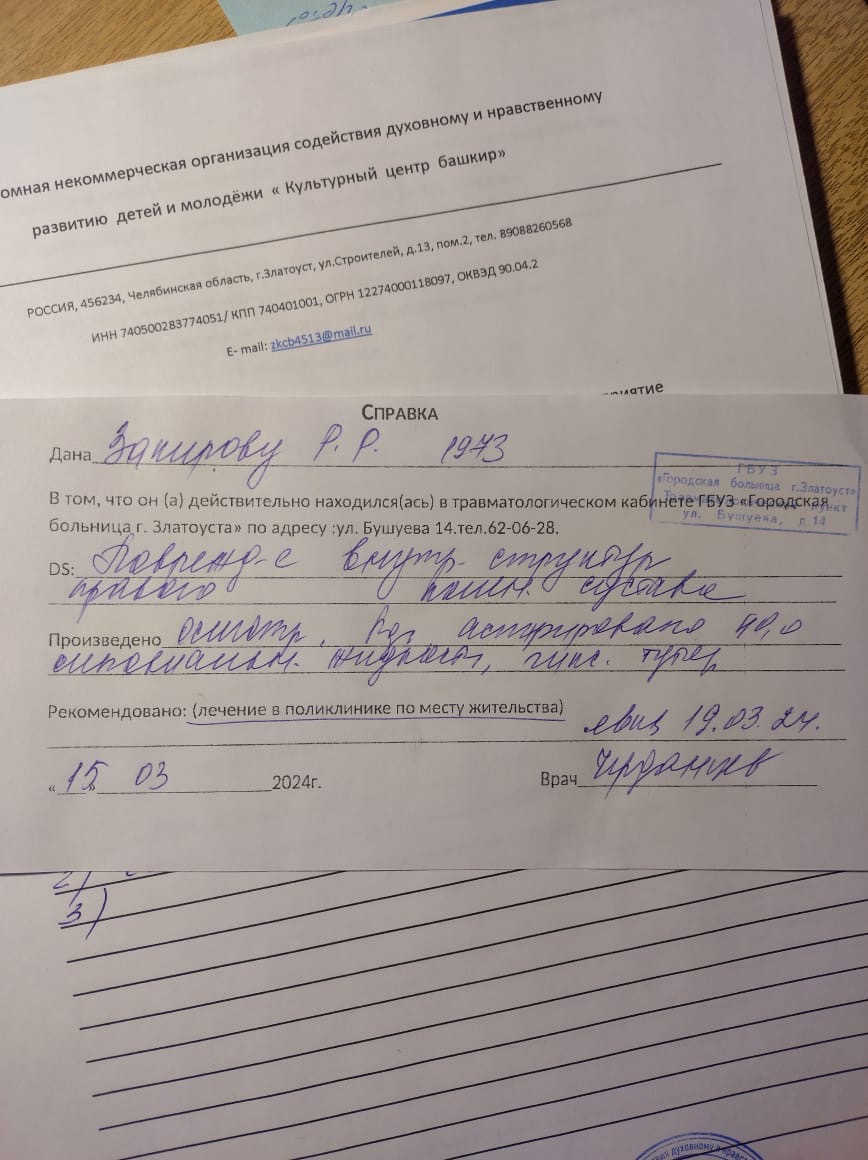 омная некоммерческая организация содействия духовному и нравственному
развитию детей и молодёжи « Культурный центр башкир»
РОССИЯ, 456234, Челябинская область, г.Златоуст, ул.Строителей, д.13, пом.2, тел. 89088260568
ИНН 740500283774051/ КПП 740401001, ОГРН 12274000118097, ОКВЭД 90.04.2
E- mail: zkcb4513@mail.ru
приятие
СПРАВКА
Дана Закирову Р. Р. 1973
ГБУЗ
«Городская больница г.Златоуст»
Травматологический пункт
ул. Бушуева, д 14
В том, что он (а) действительно находился(ась) в травматологическом кабинете ГБУЗ «Городская
больница г. Златоуста» по адресу :ул. Бушуева 14.тел.62-06-28.
DS: Поврежд-е внутр. структур
правого колен. сустава
Произведено осмотр, аспирировано 40,0
синовиальн. жидкости, гипс. тутор
Рекомендовано: (лечение в поликлинике по месту жительства)
явка 19.03.24.
«15» 03 2024г. Врач
2)
3)